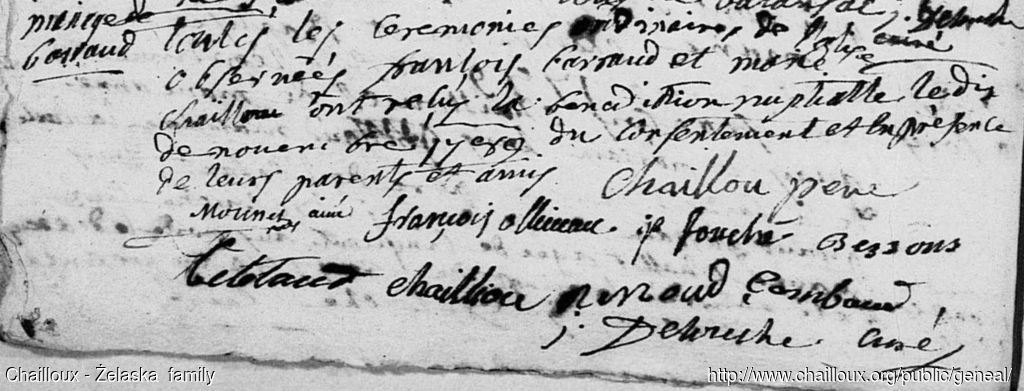 mariage de
barraud
j. Delouche
curé
toutes les ceremonies ordinaires de
observeés françois barraud et marie
chaillou ont reçus la benediction nuptialle le dix
de novembre du consentement et en presence
de leurs parents et amis chaillou pere
françois ollineau . jp fouché Bessons
chailliou renaud Gombaud
j. Delouche curé
Chailloux - Żelaska family
http://www.chailloux.org/public/geneal/